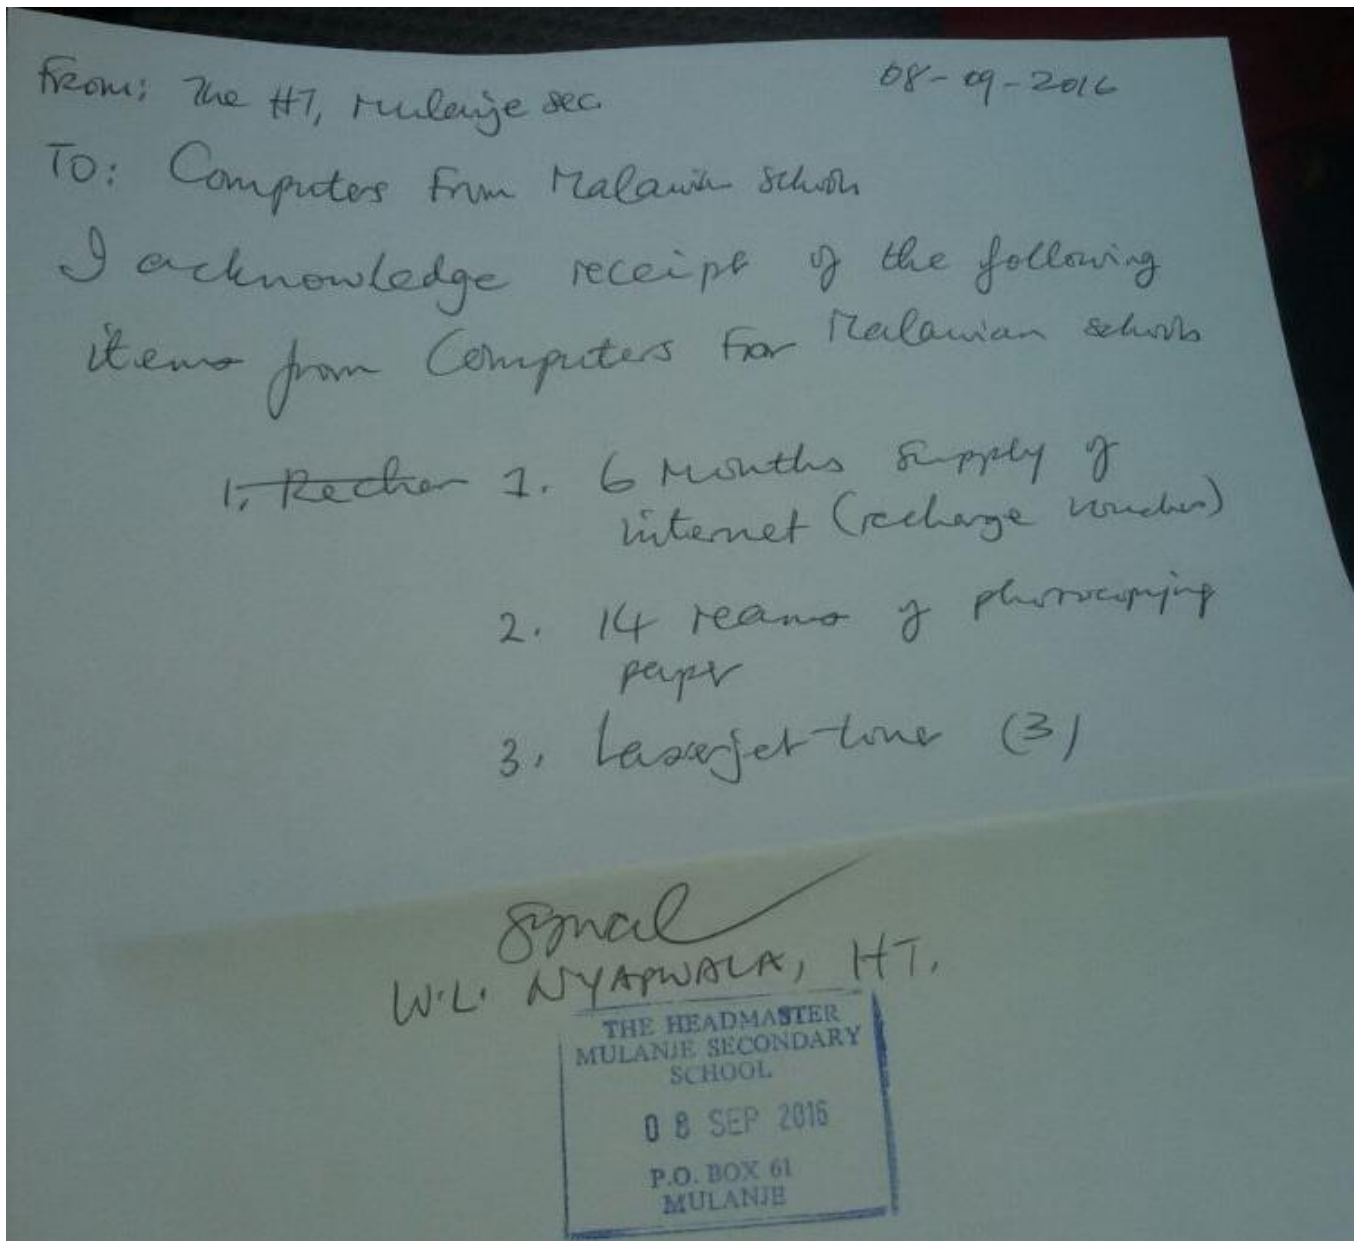 From: The HT, Mulanje sec. 08-09-2016
TO: Computers From Malawian schools
I acknowledge receipt of the following
items from Computers For Malawian schools
1. Rechar 1. 6 Months supply of
internet (recharge voucher)
2. 14 reams of photocopying
paper
3. Laserjet toner (3)
W.L. NYAPWALA, HT.
THE HEADMASTER
MULANJE SECONDARY
SCHOOL
08 SEP 2016
P.O. BOX 61
MULANJE